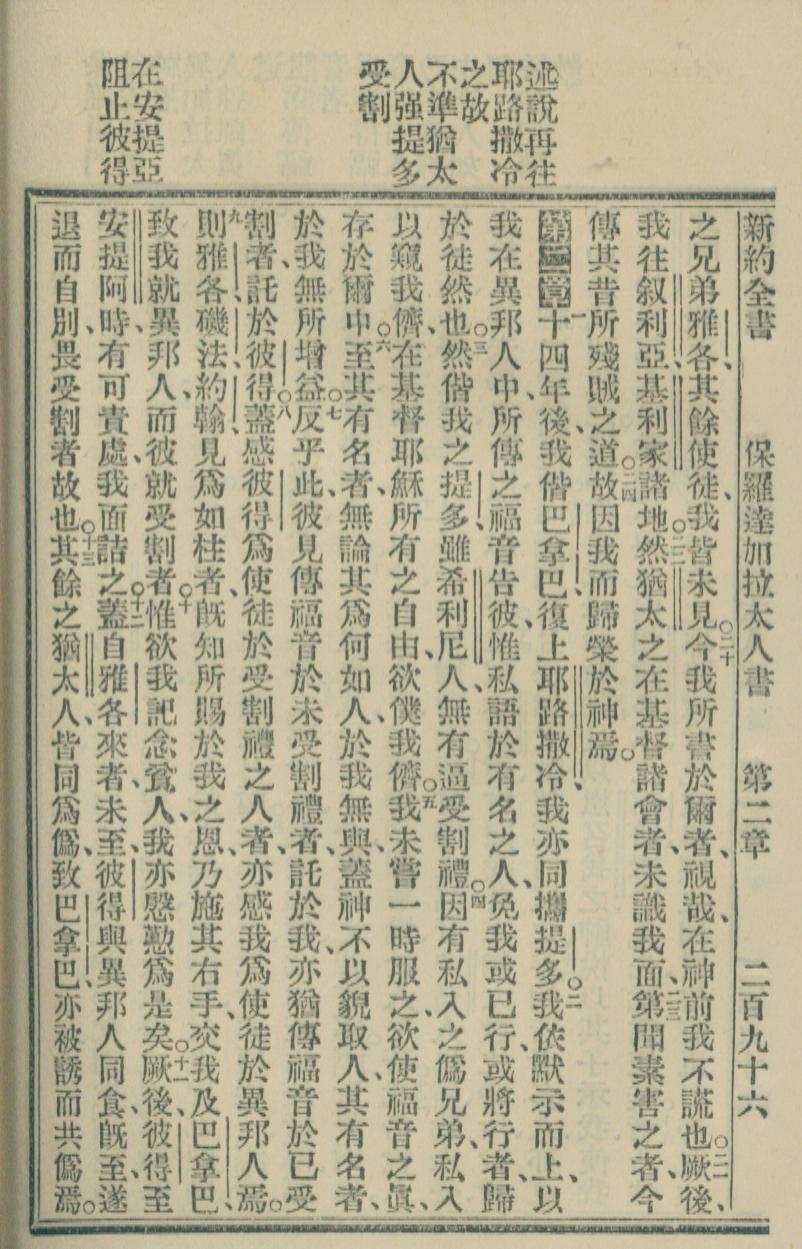 新約全書 保羅達加拉太人書 第二章 二百九十六
述說再往
耶路撒冷
之故
不準猶太
人强提多
受割
在安提亞
阻止彼得
之兄弟雅各、其餘使徒、我皆未見、○二十今我所書於爾者、視哉、在神前我不謊也、○二一厥後、
我往叙利亞、基利家諸地、○二二然猶太之在基督諸會者、未識我面、○二三第聞素害之者、今
傳其昔所殘賊之道、○二四故因我而歸榮於神焉。
第二章一十四年後、我偕巴拿巴、復上耶路撒冷、我亦同攜提多、○二我依默示而上、以
我在異邦人中、所傳之福音告彼、惟私語於有名之人、免我或已行、或將行者、歸
於徒然也、○三然偕我之提多、雖希利尼人、無有逼受割禮、○四因有私入之僞兄弟、私入
以窺我儕、在基督耶穌所有之自由、欲僕我儕、○五我未嘗一時服之、欲使福音之眞、
存於爾中、○六至其有名者、無論其爲何如人、於我無與、蓋神不以貌取人、其有名者、
於我無所增益、○七反乎此、彼見傳福音於未受割禮者、託於我、亦猶傳福音於已受
割者、託於彼得、○八蓋感彼得爲使徒於受割禮之人者、亦感我爲使徒於異邦人焉。
九則雅各、磯法、約翰、見爲如柱者、旣知所賜於我之恩、乃施其右手、交我及巴拿巴、
致我就異邦人、而彼就受割者、○十惟欲我記念貧人、我亦慇懃爲是矣、○十一厥後、彼得至
安提阿時、有可責處、我面詰之、○十二蓋自雅各來者、未至、彼得與異邦人同食、旣至、遂
退而自別、畏受割者故也、○十三其餘之猶太人、皆同爲僞、致巴拿巴、亦被誘而共僞焉。